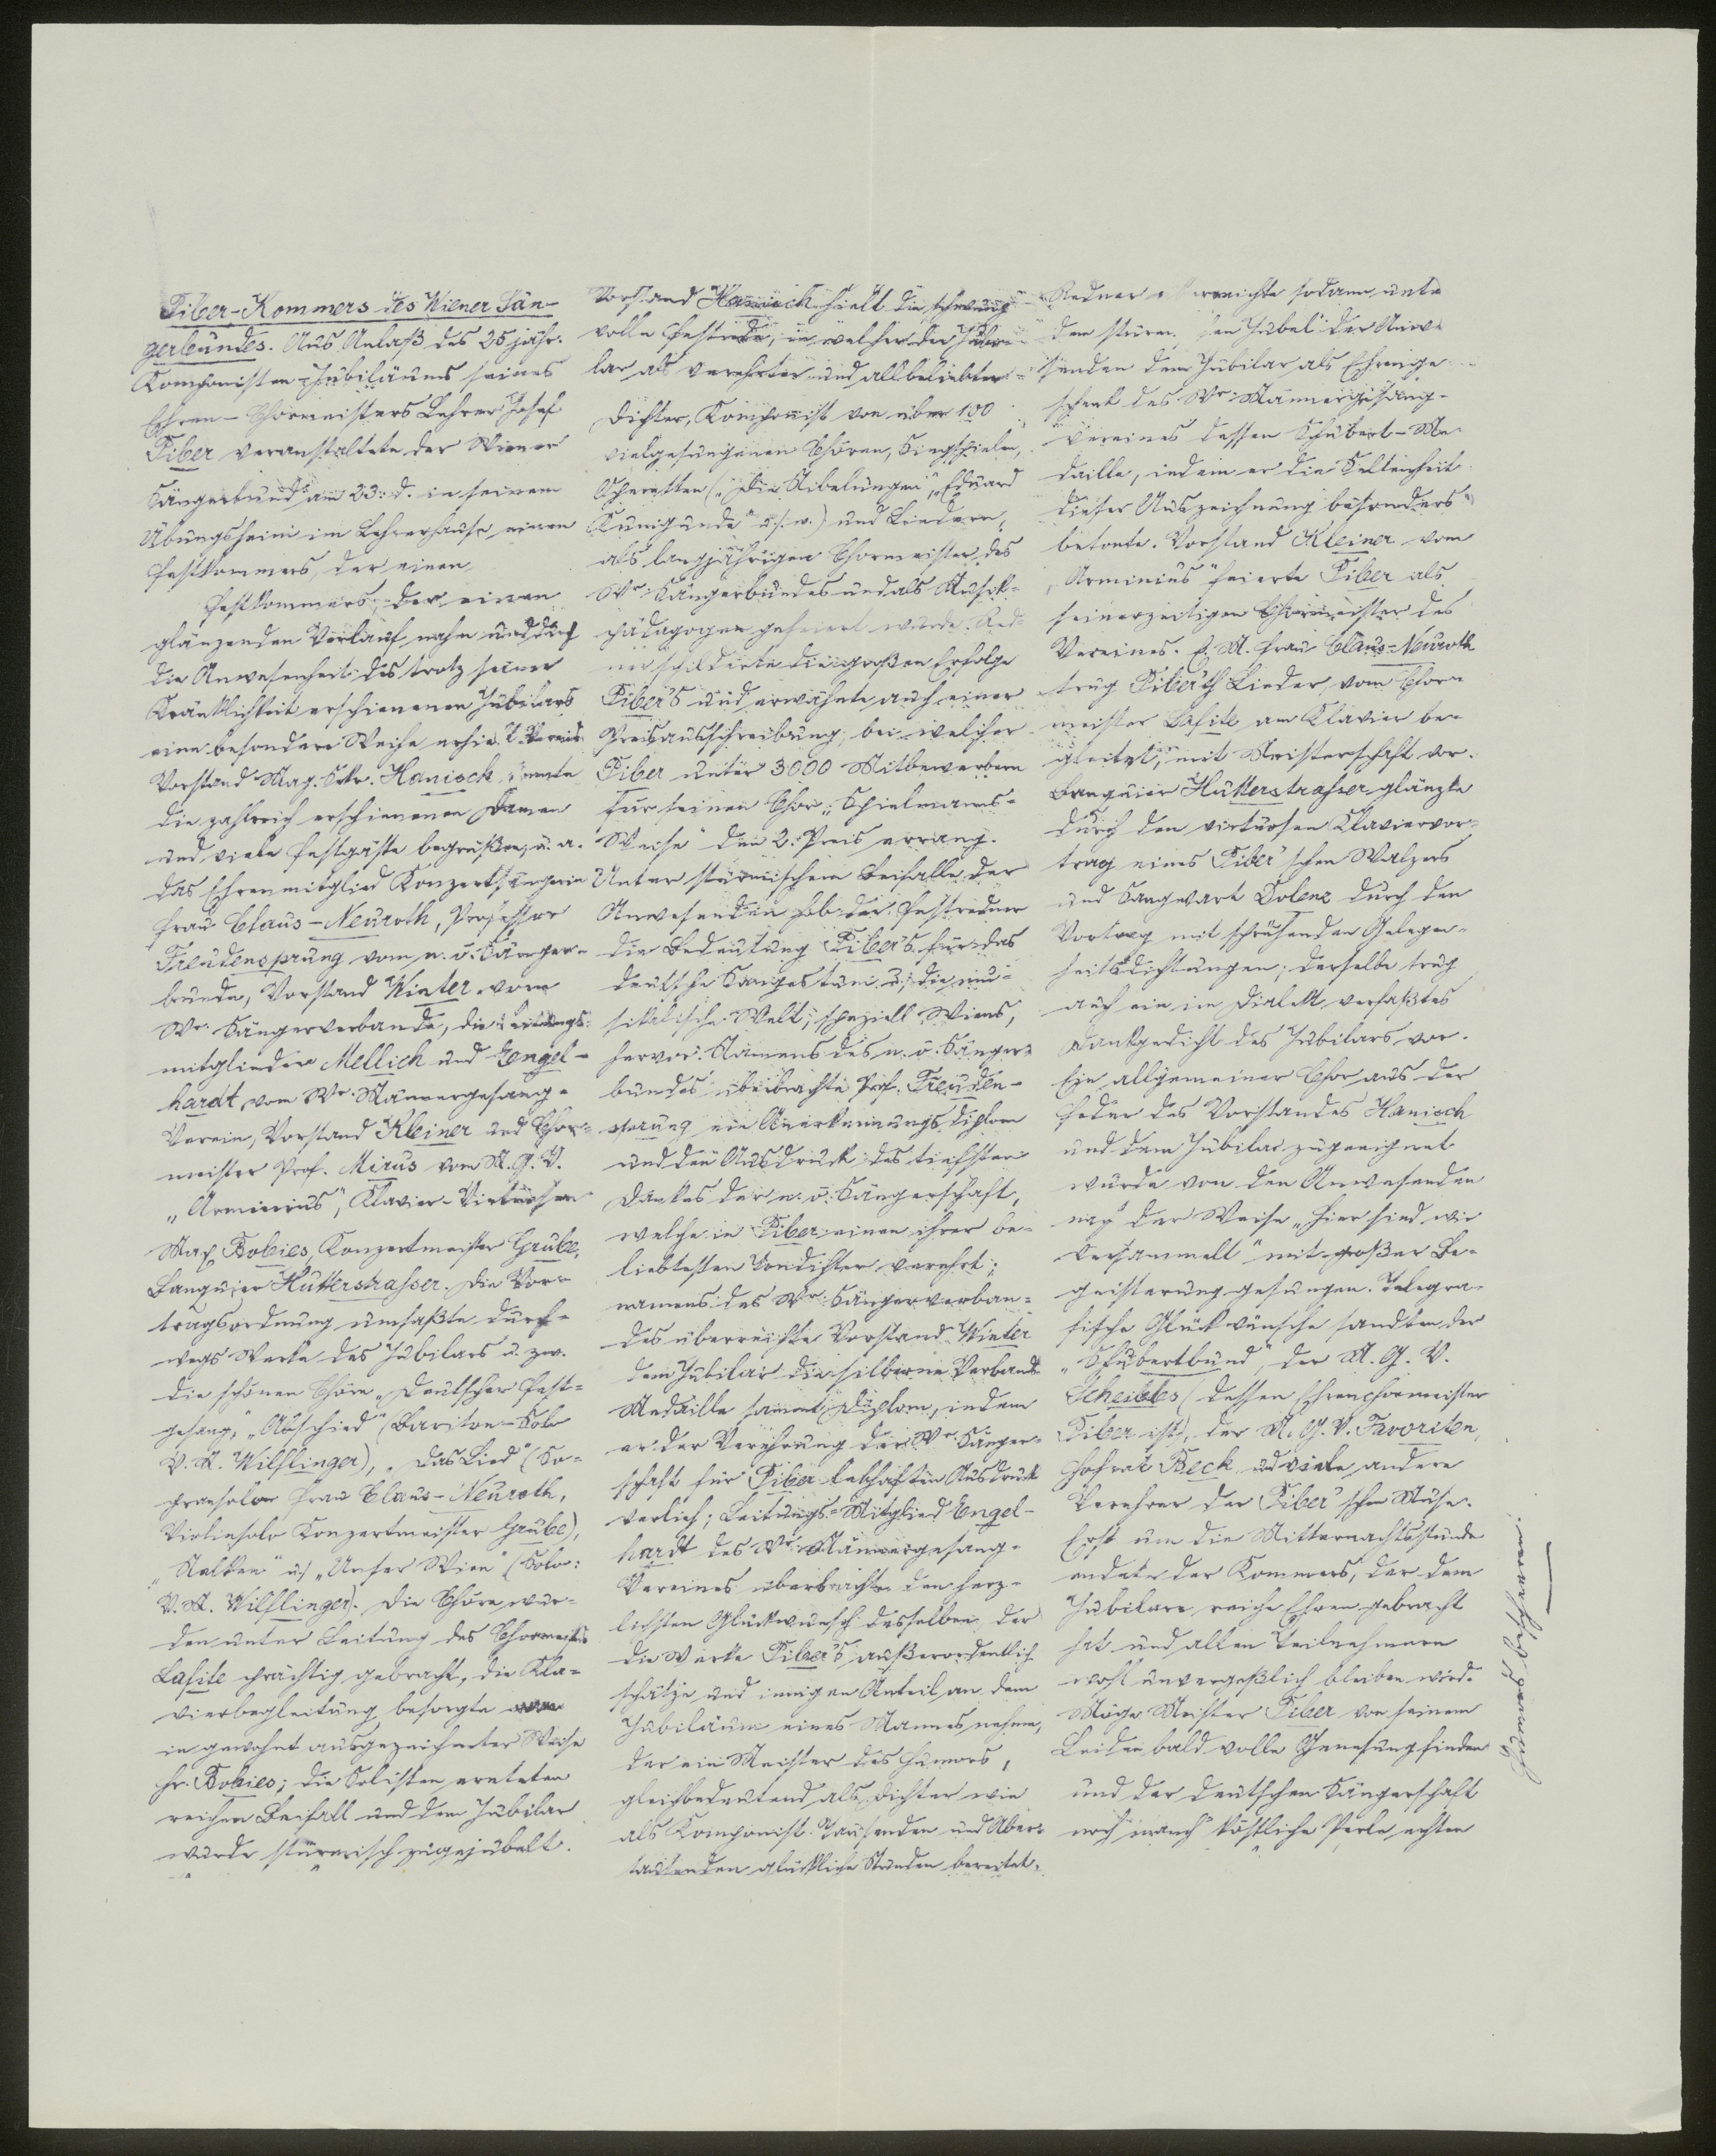 Piber-Kommers des Wiener Sän-
gerbundes. Aus Anlaß des 25 jähr.
Komponisten-Jubiläums seines
Ehren-Chormeisters Lehrer Josef
Piber veranstaltete der Wiener
Sängerbund am 23. d. in seinem
Übungsheim im Lehrerhause einen
Festkommers, der einen
Festkommers, der einen
glänzenden Verlauf nahm und durch
die Anwesenheit des trotz seiner
Kränklichkeit erschienenen Jubilars
eine besondere Weihe erhielt. Vereins
Vorstand Mag. Sekr. Hanisch konnte
die zahlreich erschienenen Damen
und viele Festgäste begrüßen, u. a.
das Ehrenmitglied Konzertsängerin
Frau Claus-Neuroth, Professor
Freudensprung vom n. ö. Sänger-
bunde, Vorstand Winter vom
Wr. Sängerverbande, die Leitungs-
mitglieder Mellich und Engel-
hardt vom Wr. Männergesang-
Verein, Vorstand Kleiner und Chor-
meister Prof. Mirus vom M. G. V.
„Arminius", Klavier-Virtuosen
Max Bobies, Konzertmeister Grube,
Banquier Hutterstrasser. Die Vor-
tragsordnung umfaßte durch-
wegs Werke des Jubilars u. zw.
die schönen Chöre „Deutscher Fest-
gesang", „Abschied" (Bariton-Solo
V. M. Wilflinger), „Das Lied" (So-
pransolo Frau Claus-Neuroth,
Violinsolo Konzertmeister Grube),
„Nelken" u. „Unser Wien" (Solo:
V. M. Wilflinger). Die Chöre wur-
den unter Leitung des Chormeisters
Lafite prächtig gebracht, die Kla-
vierbegleitung besorgte
in gewohnt ausgezeichneter Weise
Hr. Bobies; die Solisten ernteten
reichen Beifall und dem Jubilar
wurde stürmisch zugejubelt.
Vorstand Hanisch hielt die schwung-
volle Festrede, in welcher der Jubi-
lar als verehrter und allbeliebter
Dichter, Komponist von über 100
vielgesungenen Chören, Singspielen,
Operetten („Die Nibelungen", „Eduard
Kunigunde" u. s. w.) und Liedern,
als langjährigen Chormeister des
Wr. Sängerbundes und als Musik-
pädagogen gefeiert wurde. Red-
ner schilderte die großen Erfolge
Piber's und erwähnte auch einer
Preisausschreibung, bei welcher
Piber unter 3000 Mitbewerbern
für seinen Chor „Spielmanns-
Weise" den 2. Preis errang.
Unter stürmischem Beifalle der
Anwesenden hob der Festredner
die Bedeutung Piber's für das
deutsche Sangestum u. die mu-
sikalische Welt, speziell Wiens,
hervor. Namens des n. ö. Sänger-
bundes überbrachte Prof. Freuden-
sprung ein Anerkennungsdiplom
und den Ausdruck des tiefsten
Dankes der n. ö. Sängerschaft,
welche in Piber einen ihrer be-
liebtesten Tondichter verehrt;
namens des Wr. Sängerverban-
des überreichte Vorstand Winter
dem Jubilar die silberne Verbands-
Medaille samt Diplom, indem
er der Verehrung der Wr. Sänger-
schaft für Piber lebhaften Ausdruck
verlieh; Leitungs-Mitglied Engel-
hardt des Wr. Männergesang-
Vereines überbrachte den herz-
lichsten Glückwunsch desselben, der
die Werke Piber's außerordentlich
schätze und innigen Anteil an dem
Jubiläum eines Mannes nehme,
der ein Meister des Humors,
gleichbedeutend als Dichter wie
als Komponist. Tausenden und Aber-
tausenden glückliche Stunden bereitet.
Redner überreichte sodann unte
dem stürm hen Jubel der Anwe
senden dem Jubilar als Ehrenge
schenk des Wr. Männergesang-
Vereines dessen Schubert-Me
daille, indem er die Seltenheit
dieser Auszeichnung besonders
betonte. Vorstand Kleiner vom
„Arminius" feierte Piber als
seinerzeitigen Chormeister des
Vereines. E. M. Frau Claus-Neuroth
trug Piber'sch Lieder, vom Chor-
meister Lafite am Klavier be-
gleitet, mit Meisterschaft vor.
Banquier Hutterstrasser glänzte
durch den virtuosen Klaviervor-
trag eines Piber'schen Walzers
und Sangwart Dolenz durch den
Vortrag mit sprühenden Gelegen-
heitsdichtungen; derselbe trug
auch ein im Dialekt verfaßtes
Dankgedicht des Jubilars vor.
Ein allgemeiner Chor aus der
Feder des Vorstandes Hanisch
und dem Jubilar zugeeignet
wurde von den Anwesenden
nach der Weise „Hier sind wir
versammelt" mit großer Be-
geisterung gesungen. Telegra-
fische Glückwünsche sandten der
„Schubertbund", der M. G. V.
Scheibbs (dessen Ehrenchormeister
Piber ist), der M. G. V. Favoriten,
Hofrat Beck und viele andere
Verehrer der Piber'schen Muse.
Erst um die Mitternachtsstunde
endete der Kommers, der dem
Jubilare reiche Ehren gebracht
hat und allen Teilnehmern
wohl unvergeßlich bleiben wird.
Möge Meister Piber von seinem
Leiden bald volle Genesung finden
und der deutschen Sängerschaft
noch manch' köstliche Perle echten